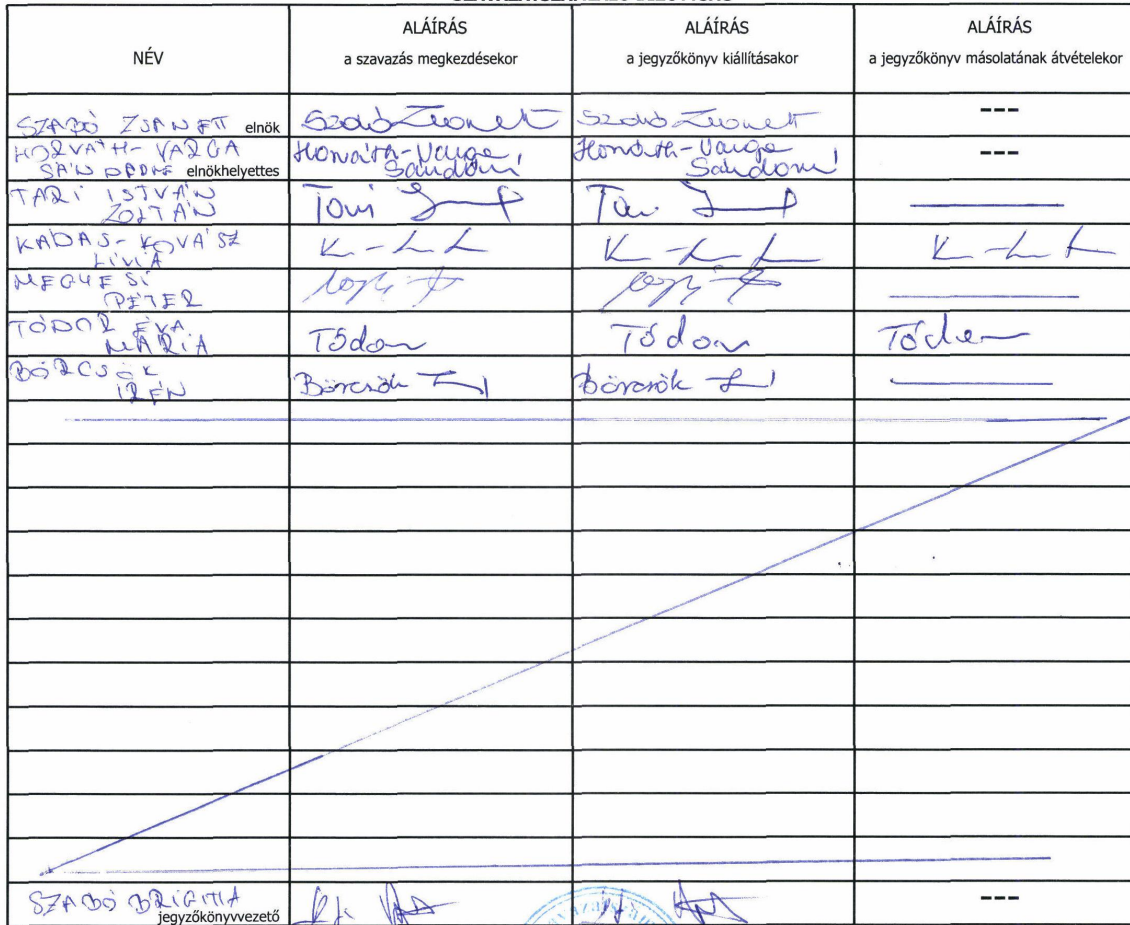 NÉV
ALÁÍRÁS
a szavazás megkezdésekor
ALÁÍRÁS
a jegyzőkönyv kiállításakor
ALÁÍRÁS
a jegyzőkönyv másolatának átvételekor
SZABÓ ZSANETT elnök
Szabó Zsanett
Szabó Zsanett
---
HORVÁTH-VARGA
SÁNDORNÉ elnökhelyettes
Horváth-Varga
Sándorné
Horváth-Varga
Sándorné
---
TARI ISTVÁN
ZOLTÁN
Tari
Tari
KADAS-KOVÁSZ
LÍVIA
MEGYESI
PÉTER
TÓDOR ÉVA
MÁRIA
Tódor
Tódor
Tódor
BÖRCSÖK
IRÉN
Börcsök
Börcsök
SZABÓ BRIGITTA
jegyzőkönyvvezető
---